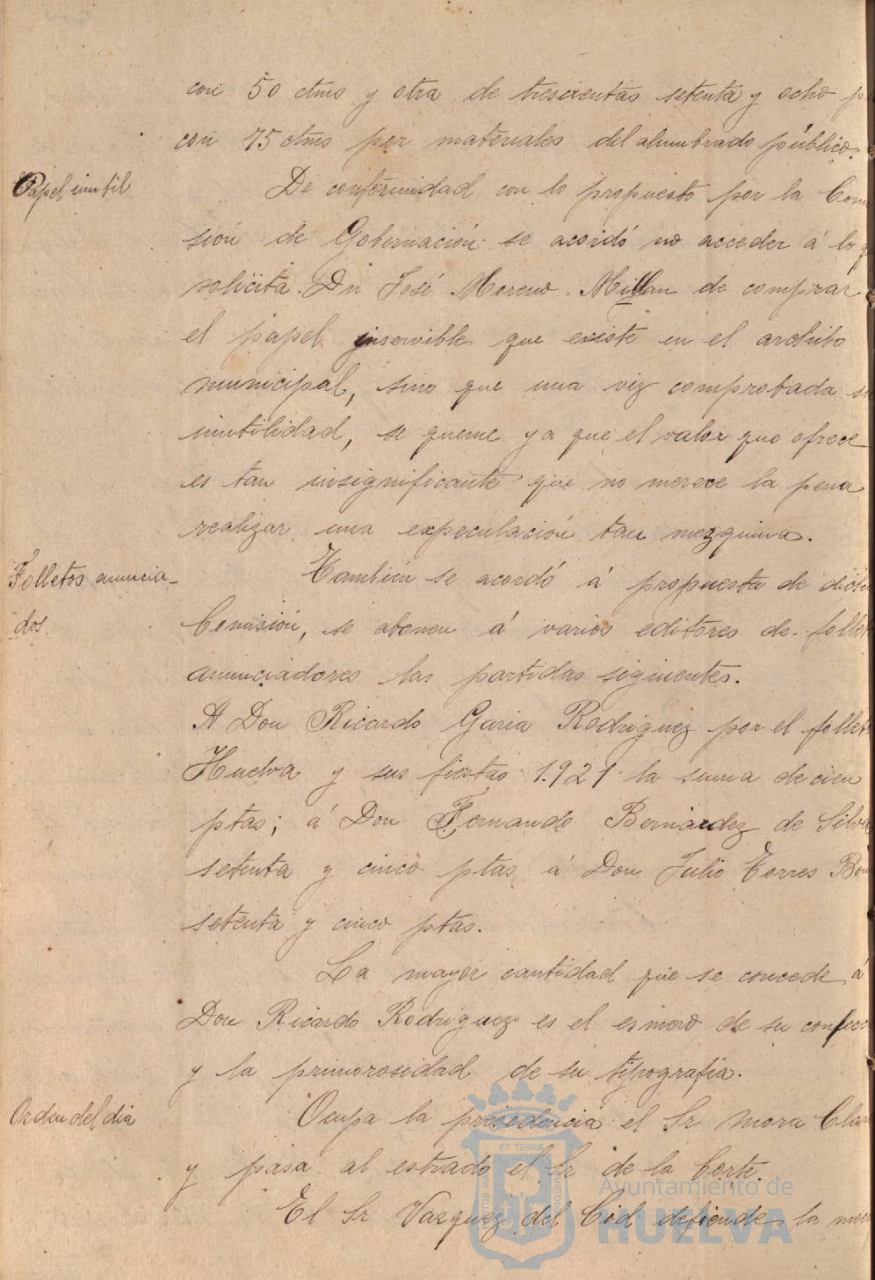 con 50 ctms y otra de trescientas setenta y ocho p
con 75 ctms por materiales del alumbrado público.
Papel inutil
De conformidad con lo propuesto por la Comi
sión de Gobernación se acordó no acceder á lo q
solicita Dn José Moreno Millan de comprar
el papel inservible que existe en el archibo
municipal, sino que una vez comprobada su
inutilidad, se queme ya que el valor que ofrece
es tan insignificante que no merece la pena
realizar una expeculación tan mezquina.
Folletos anuncia-
dos.
También se acordó á propuesta de dicha
Comisión, se abonen á varios editores de follet
anunciadores las partidas siguientes.
A Don Ricardo Garia Rodriguez por el follet
Huelva y sus fiestas 1.921 la suma de cien
ptas; á Don Fernando Bernardez de Silva
setenta y cinco ptas á Don Julio Torres Bon
setenta y cinco ptas.
La mayor cantidad que se concede á
Don Ricardo Rodriguez es el esmero de su confec
y la primorosidad de su tipografia.
Orden del dia
Ocupa la presidencia el Sr Mora Clar
y pasa al estrado el Sr de la Corte.
El Sr Vazquez del Cid defiende la moc
Ayuntamiento de
HUELVA